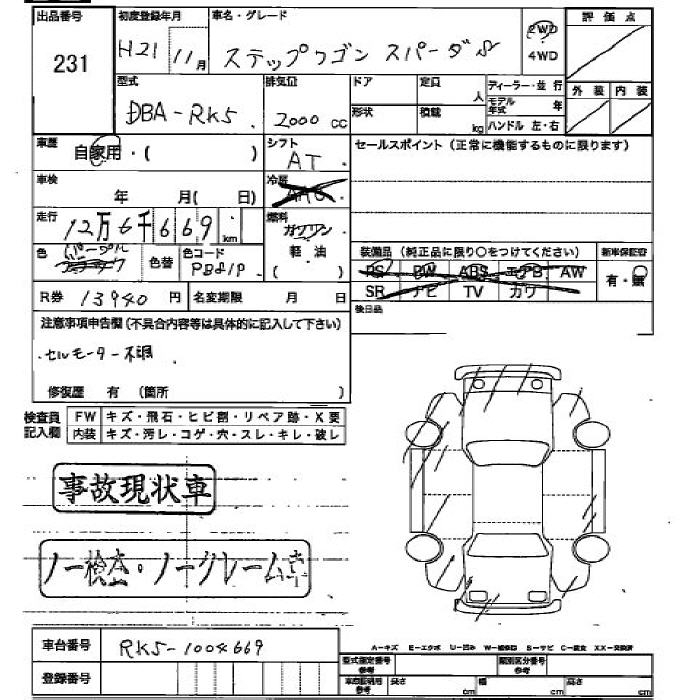 出品番号
231
初度登録年月
H21 11月
車名・グレード
ステップワゴン スパーダ S
2WD
4WD
評価点
外装 内装
型式
DBA-RK5
排気量
2000 cc
ドア
形状
定員
人
積載
kg
ディーラー・並行
モデル年式 年
ハンドル 左・右
車歴
自家用・( )
シフト
AT
セールスポイント (正常に機能するものに限ります)
車検
年 月( 日)
冷房
AAC
走行
12万6千669km
燃料
ガソリン
軽・油
( )
色
パープル
色替
色コード
PB81P
装備品 (純正品に限り○をつけてください)
新車保証書
PS PW ABS エアB AW
SR ナビ TV カワ
有・無
R券 13940 円
名変期限 月 日
後日品
注意事項申告欄 (不具合内容等は具体的に記入して下さい)
・セルモーター不調
修復歴 有 (箇所 )
検査員記入欄
FW キズ・飛石・ヒビ割・リペア跡・X要
内装 キズ・汚レ・コゲ・穴・スレ・キレ・破レ
事故現状車
ノー検査・ノークレーム車
車台番号
RK5-1004669
登録番号
A-キズ E-エクボ U-凹み S-サビ XX-交換済
型式指定番号 参考
類別区分番号 参考
参考
長さ cm
幅 cm
高さ cm